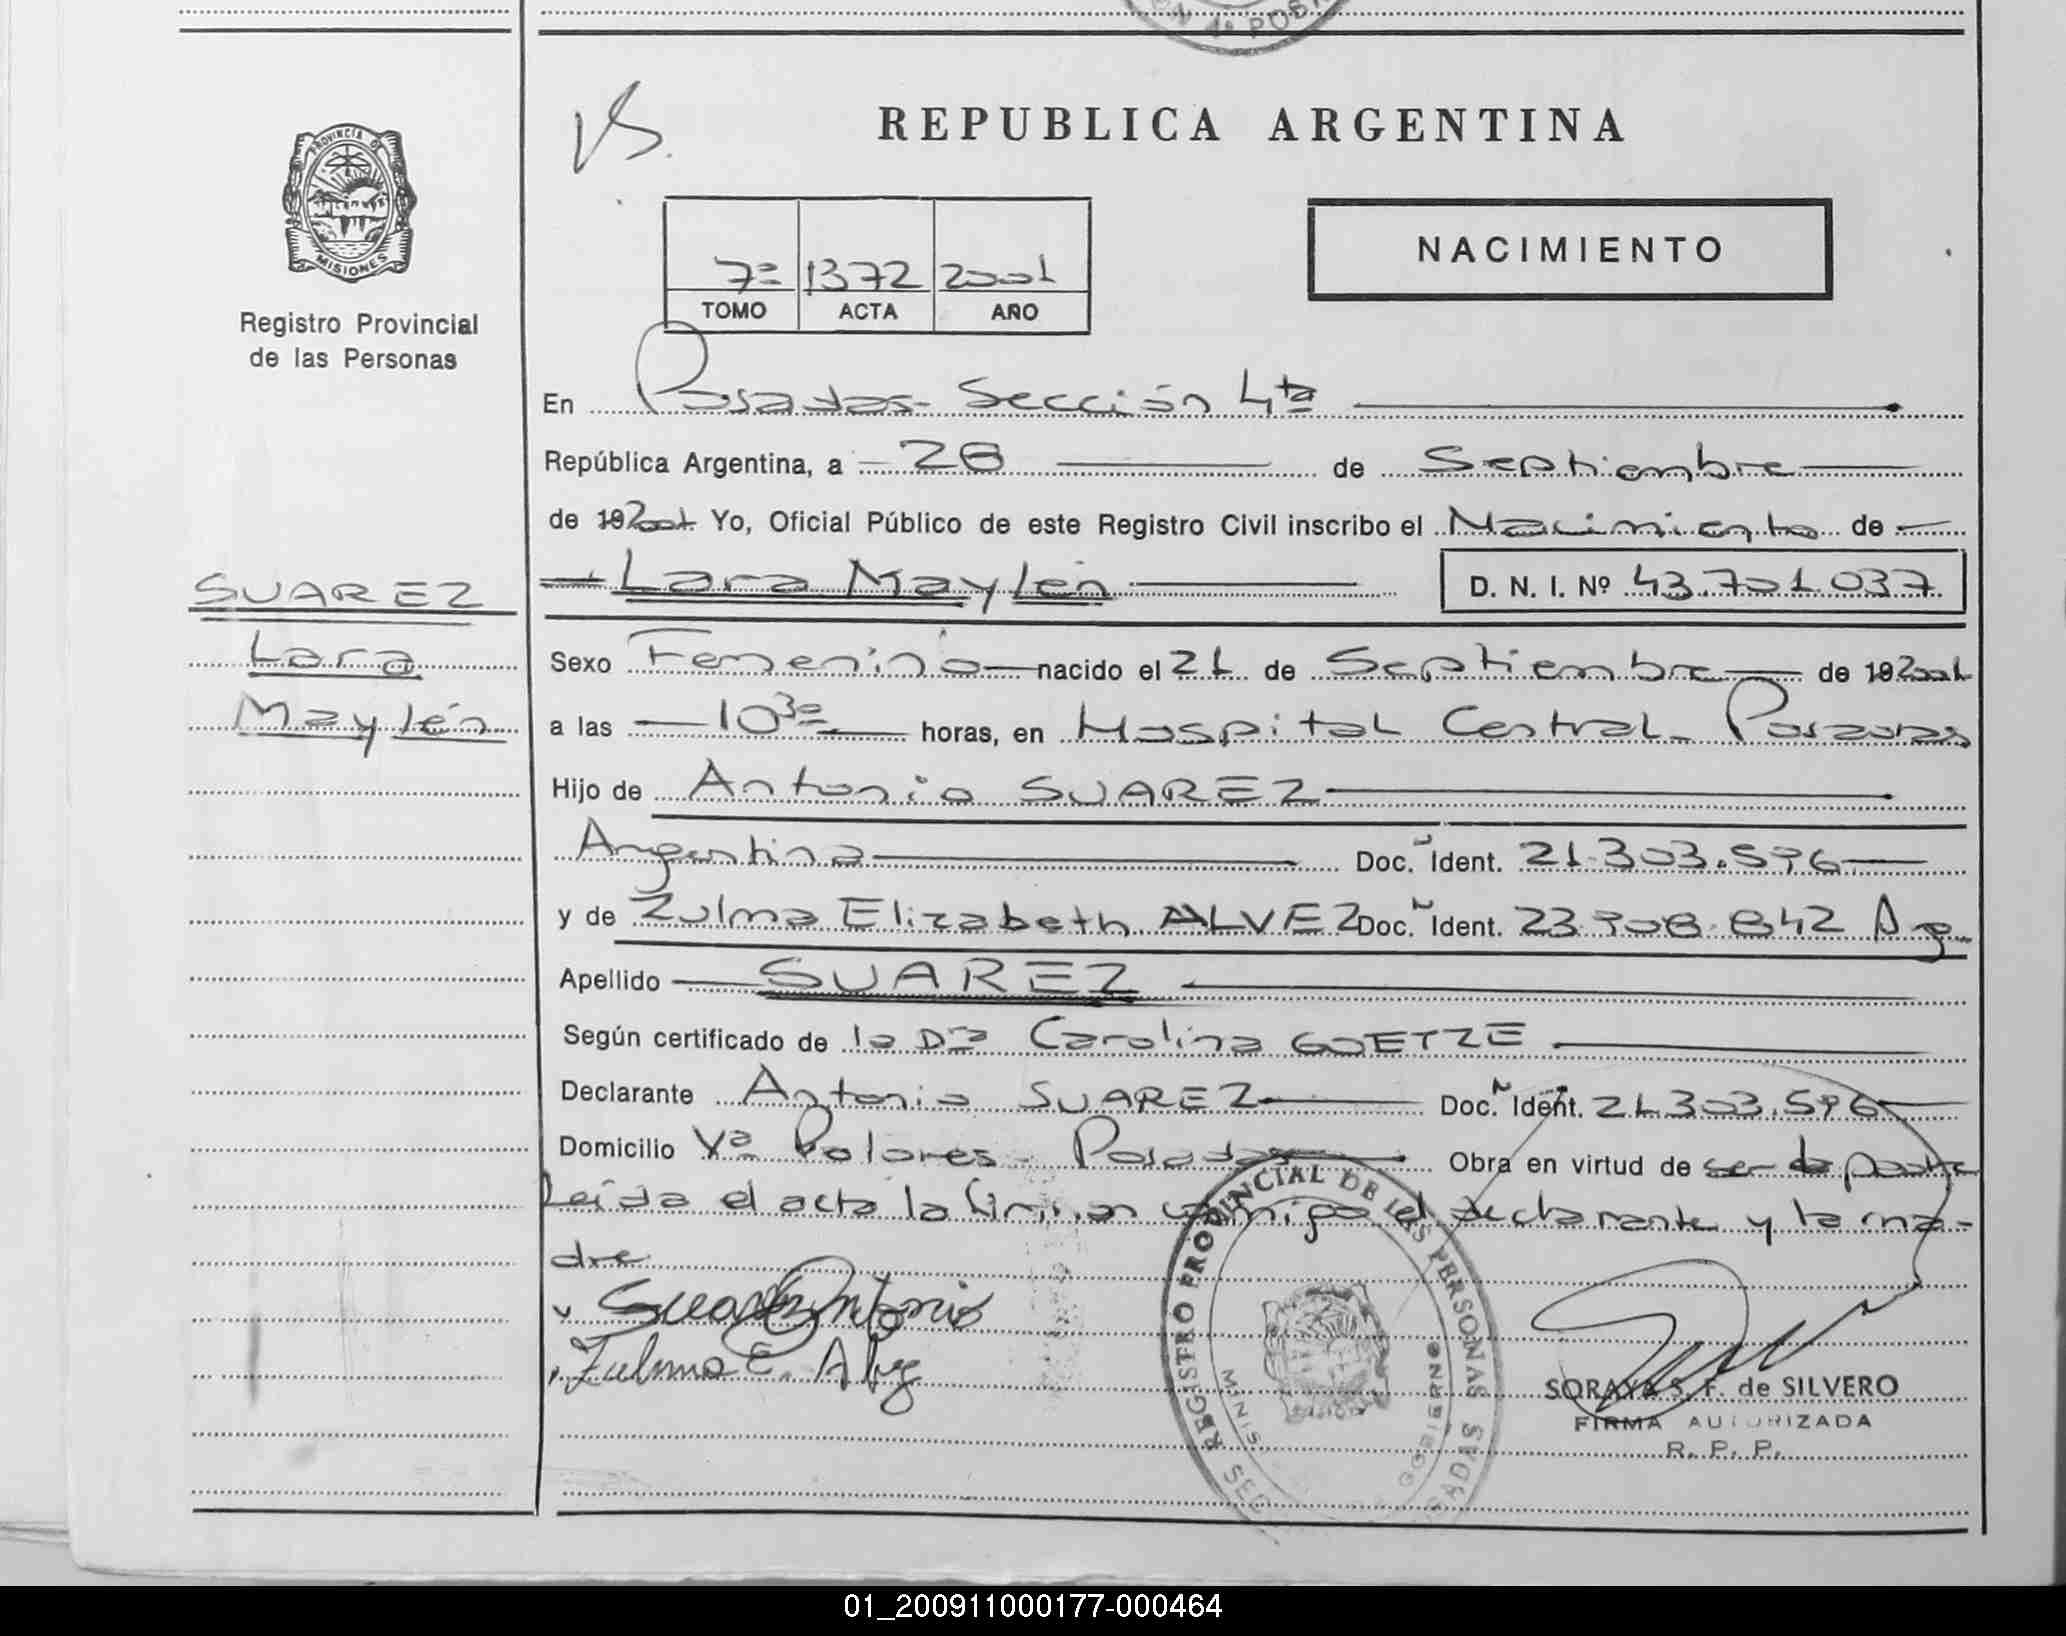 N 4ª POS
REPUBLICA ARGENTINA
PROVINCIA D
MISIONES
Registro Provincial
de las Personas
7º 1372 2001
TOMO ACTA AÑO
NACIMIENTO
En Posadas- Sección 4ta
República Argentina, a 28 de Septiembre
de 19 2001 Yo, Oficial Público de este Registro Civil inscribo el Nacimiento de
Lara Maylén D. N. I. Nº 43.701.037
SUAREZ
Lara
Maylén
Sexo Femenino nacido el 21 de Septiembre de 19 2001
a las 10³⁰ horas, en Hospital Central- Posadas
Hijo de Antonio SUAREZ
Argentina Doc. Ident. 21.303.596
y de Zulma Elizabeth ALVEZ Doc. Ident. 23.908.842 Arg
Apellido SUAREZ
Según certificado de la Dra Carolina GOETZE
Declarante Antonio SUAREZ Doc. Ident. 21.303.596
Domicilio Vª Dolores- Posadas Obra en virtud de ser padre
Leída el acta la firman conmigo el declarante y la ma-
dre
Suarez Antonio
Zulma E. Alvez
REGISTRO PROVINCIAL DE LAS PERSONAS
MINIS GOBIERNO
SORAYA S. F. de SILVERO
FIRMA AUTORIZADA
R. P. P.
01_200911000177-000464